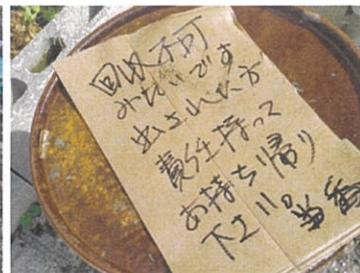 回収不可
みたいです
出された方
責任持って
お持ち帰り
下さい。当番